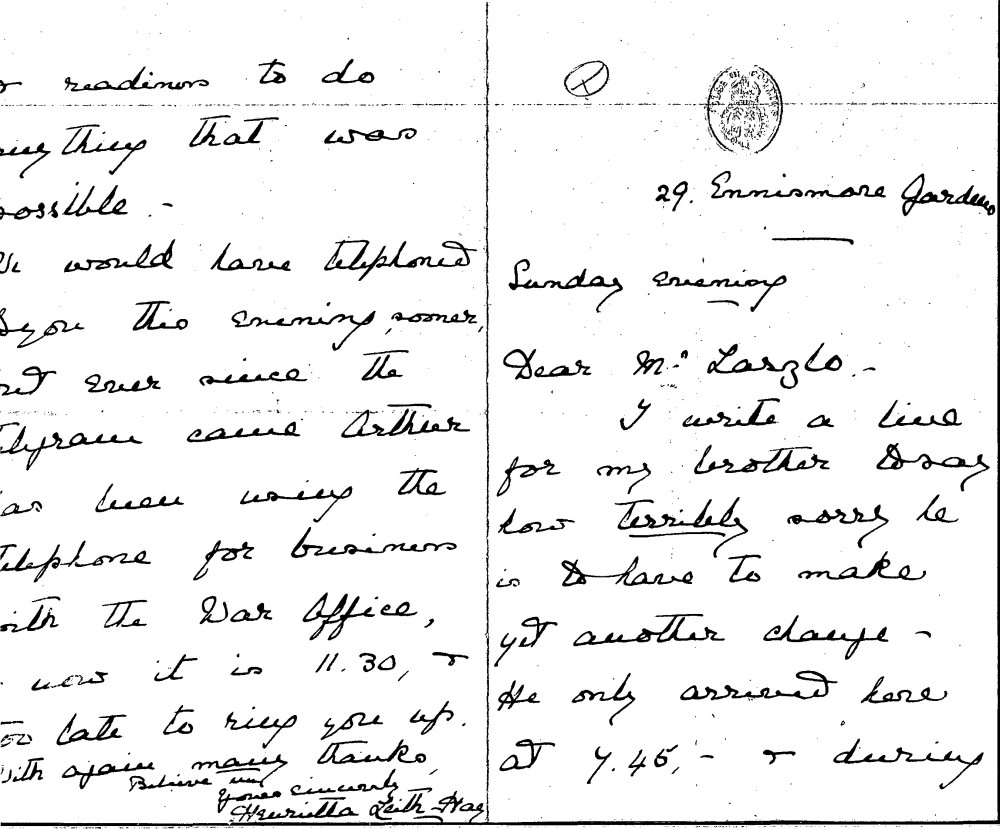 29. Ennismore Gardens
Sunday evening
Dear Mr. Laszlo. -
I write a line
for my brother to say
how terribly sorry he
is to have to make
yet another change -
He only arrived here
at 7.45, - & during
& readiness to do
anything that was
possible -
We would have telephoned
to you this evening sooner,
but ever since the
telegram came Arthur
has been using the
telephone for business
with the War Office,
& now it is 11.30, &
too late to ring you up.
With again many thanks,
Believe me
Yours sincerely
Henrietta Leith-Hay